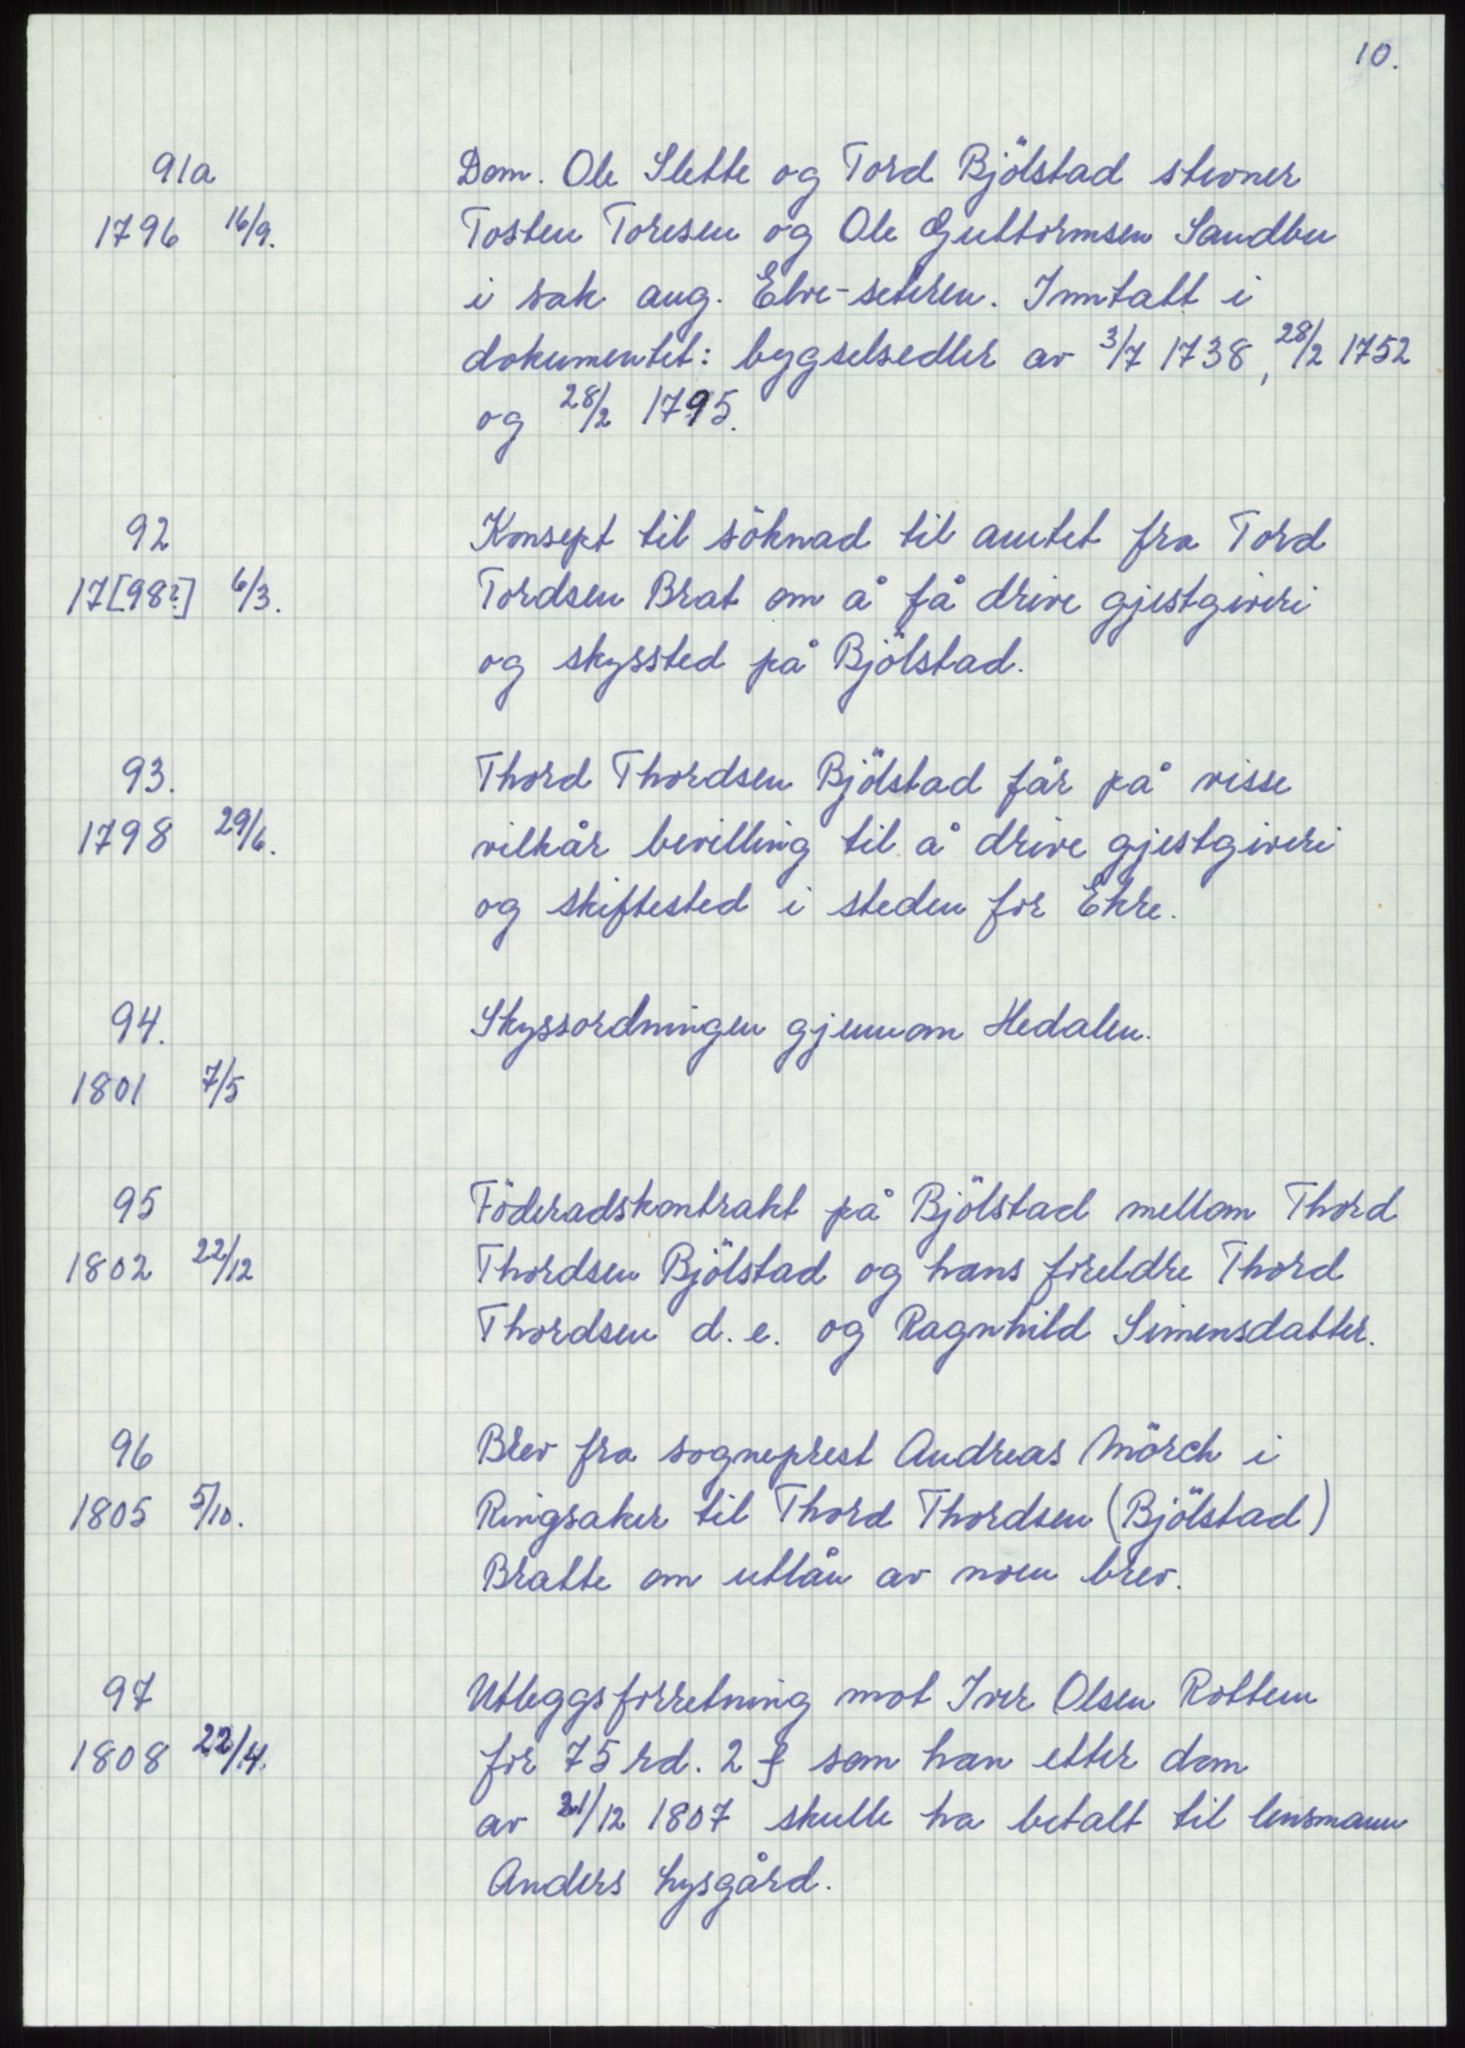 10.
91a Dom. Ole Slette og Tord Bjölstad stevner
1796 16/9. Tosten Toresen og Ole Guttormsen Sandbu
i sak ang. Elve-seteren. Inntatt i
dokumentet: bygselsedler av 3/7 1738, 28/2 1752
og 28/2 1795.
92 Konsept til söknad til amtet fra Tord
17[98?] 6/3. Tordsen Brat om å få drive gjestgiveri
og skyssted på Bjölstad.
93. Thord Thordsen Bjölstad får på visse
1798 29/6. vilkår bevilling til å drive gjestgiveri
og skiftested i steden for Ekre.
94. Skyssordningen gjennom Hedalen.
1801 7/5
95 Föderadskontrakt på Bjölstad mellom Thord
1802 22/12 Thordsen Bjölstad og hans foreldre Thord
Thordsen d. e. og Ragnhild Simensdatter.
96 Brev fra sogneprest Andreas Mörch i
1805 5/10. Ringsaker til Thord Thordsen (Bjölstad)
Bratte om utlån av noen brev.
97 Utleggsforretning mot Iver Olsen Rottem
1808 22/4. for 75 rd. 2 ʃ som han etter dom
av 21/12 1807 skulle ha betalt til lensmann
Anders Lysgård.